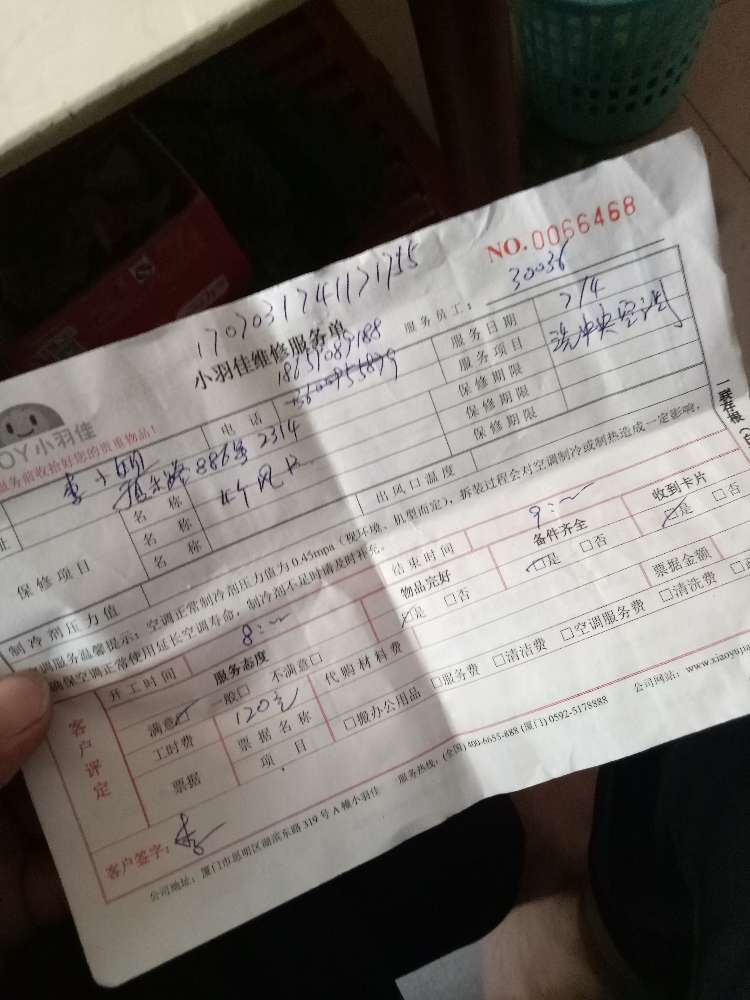 NO.0066468
17070317411171755
小羽佳维修服务单
服务员工：30036
OY小羽佳
服务前收拾好您的贵重物品！
电话
服务日期 7/4
服务项目 洗中央空调
保修期限
保修期限
保修期限
886号2314
址
保修项目
名称
名称
名称
制冷剂压力值
出风口温度
空调服务温馨提示：空调正常制冷剂压力值为0.45mpa（视环境、机型而定），拆装过程会对空调制冷或制热造成一定影响，
确保空调正常使用延长空调寿命，制冷剂不足时请及时补充。
开工时间 8:
结束时间 9:
客户评定
服务态度
物品完好
备件齐全
收到卡片
满意□ 一般□ 不满意□
□是 □否
□是 □否
□是 □否
工时费 120元
代购材料费
票据金额
票据
票据名称
项目
□搬办公用品 □服务费 □清洁费 □空调服务费 □清洗费
客户签字：
公司地址：厦门市思明区湖滨东路319号A幢小羽佳 服务热线：(全国) 400-6655-688 (厦门) 0592-5178888 公司网站：www.xiaoyujia
一联存根